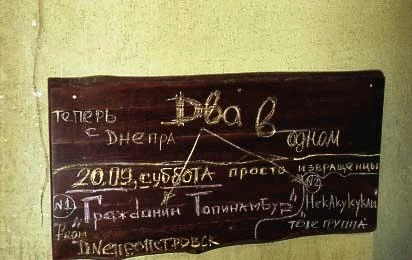 теперь с Днепра Два в одном
20.09, суббота просто извращенцы
№1 "Гражданин Топинамбур" №2 "НекАкуКуклы"
From Dnепропетровск тоте группа